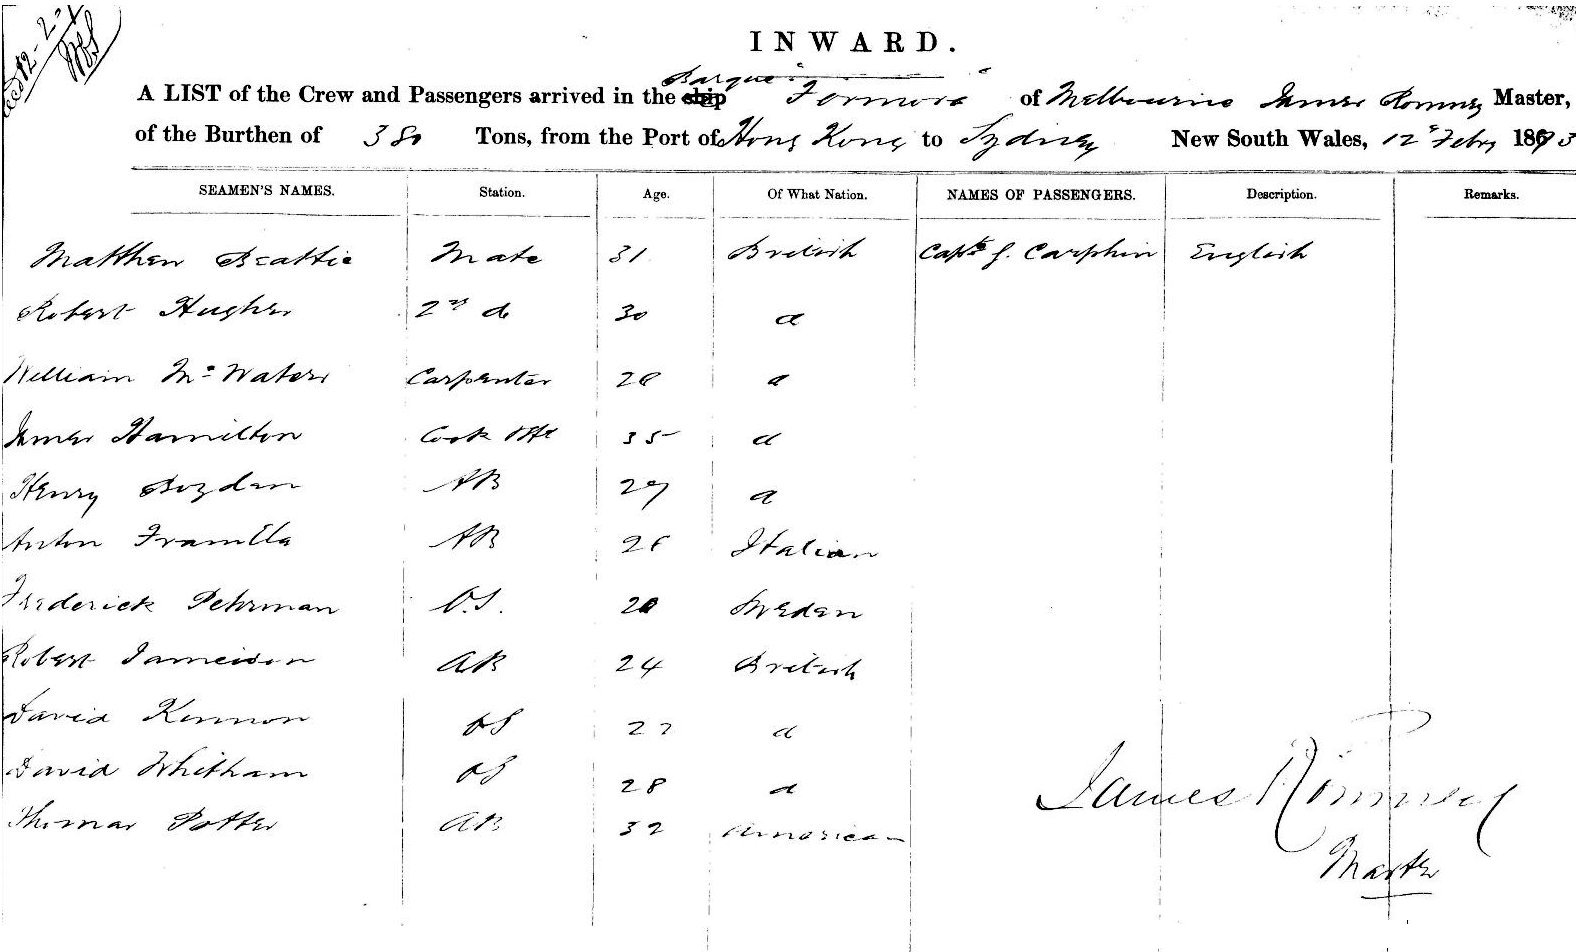 INWARD.
A LIST of the Crew and Passengers arrived in the ship Barque Formosa of Melbourne James Romney Master,
of the Burthen of 380 Tons, from the Port of Hong Kong to Sydney New South Wales, 12th Feby 1873
SEAMEN'S NAMES. Station. Age. Of What Nation. NAMES OF PASSENGERS. Description. Remarks.
Matthew Beattie Mate 31 British Capt. J. Carphin English
Robert Hughes 2nd do 30 d
William Mc Waters Carpenter 28 d
James Hamilton Cook 35 d
Henry Bozden AB 29 d
Anton Framella AB 26 Italian
Frederick Pehrman O.S. 20 Sweden
Robert Jameison AB 24 British
David Kennon OS 22 d
David Whitham OS 28 d
Thomas Potter AB 32 American
James Romney
Master